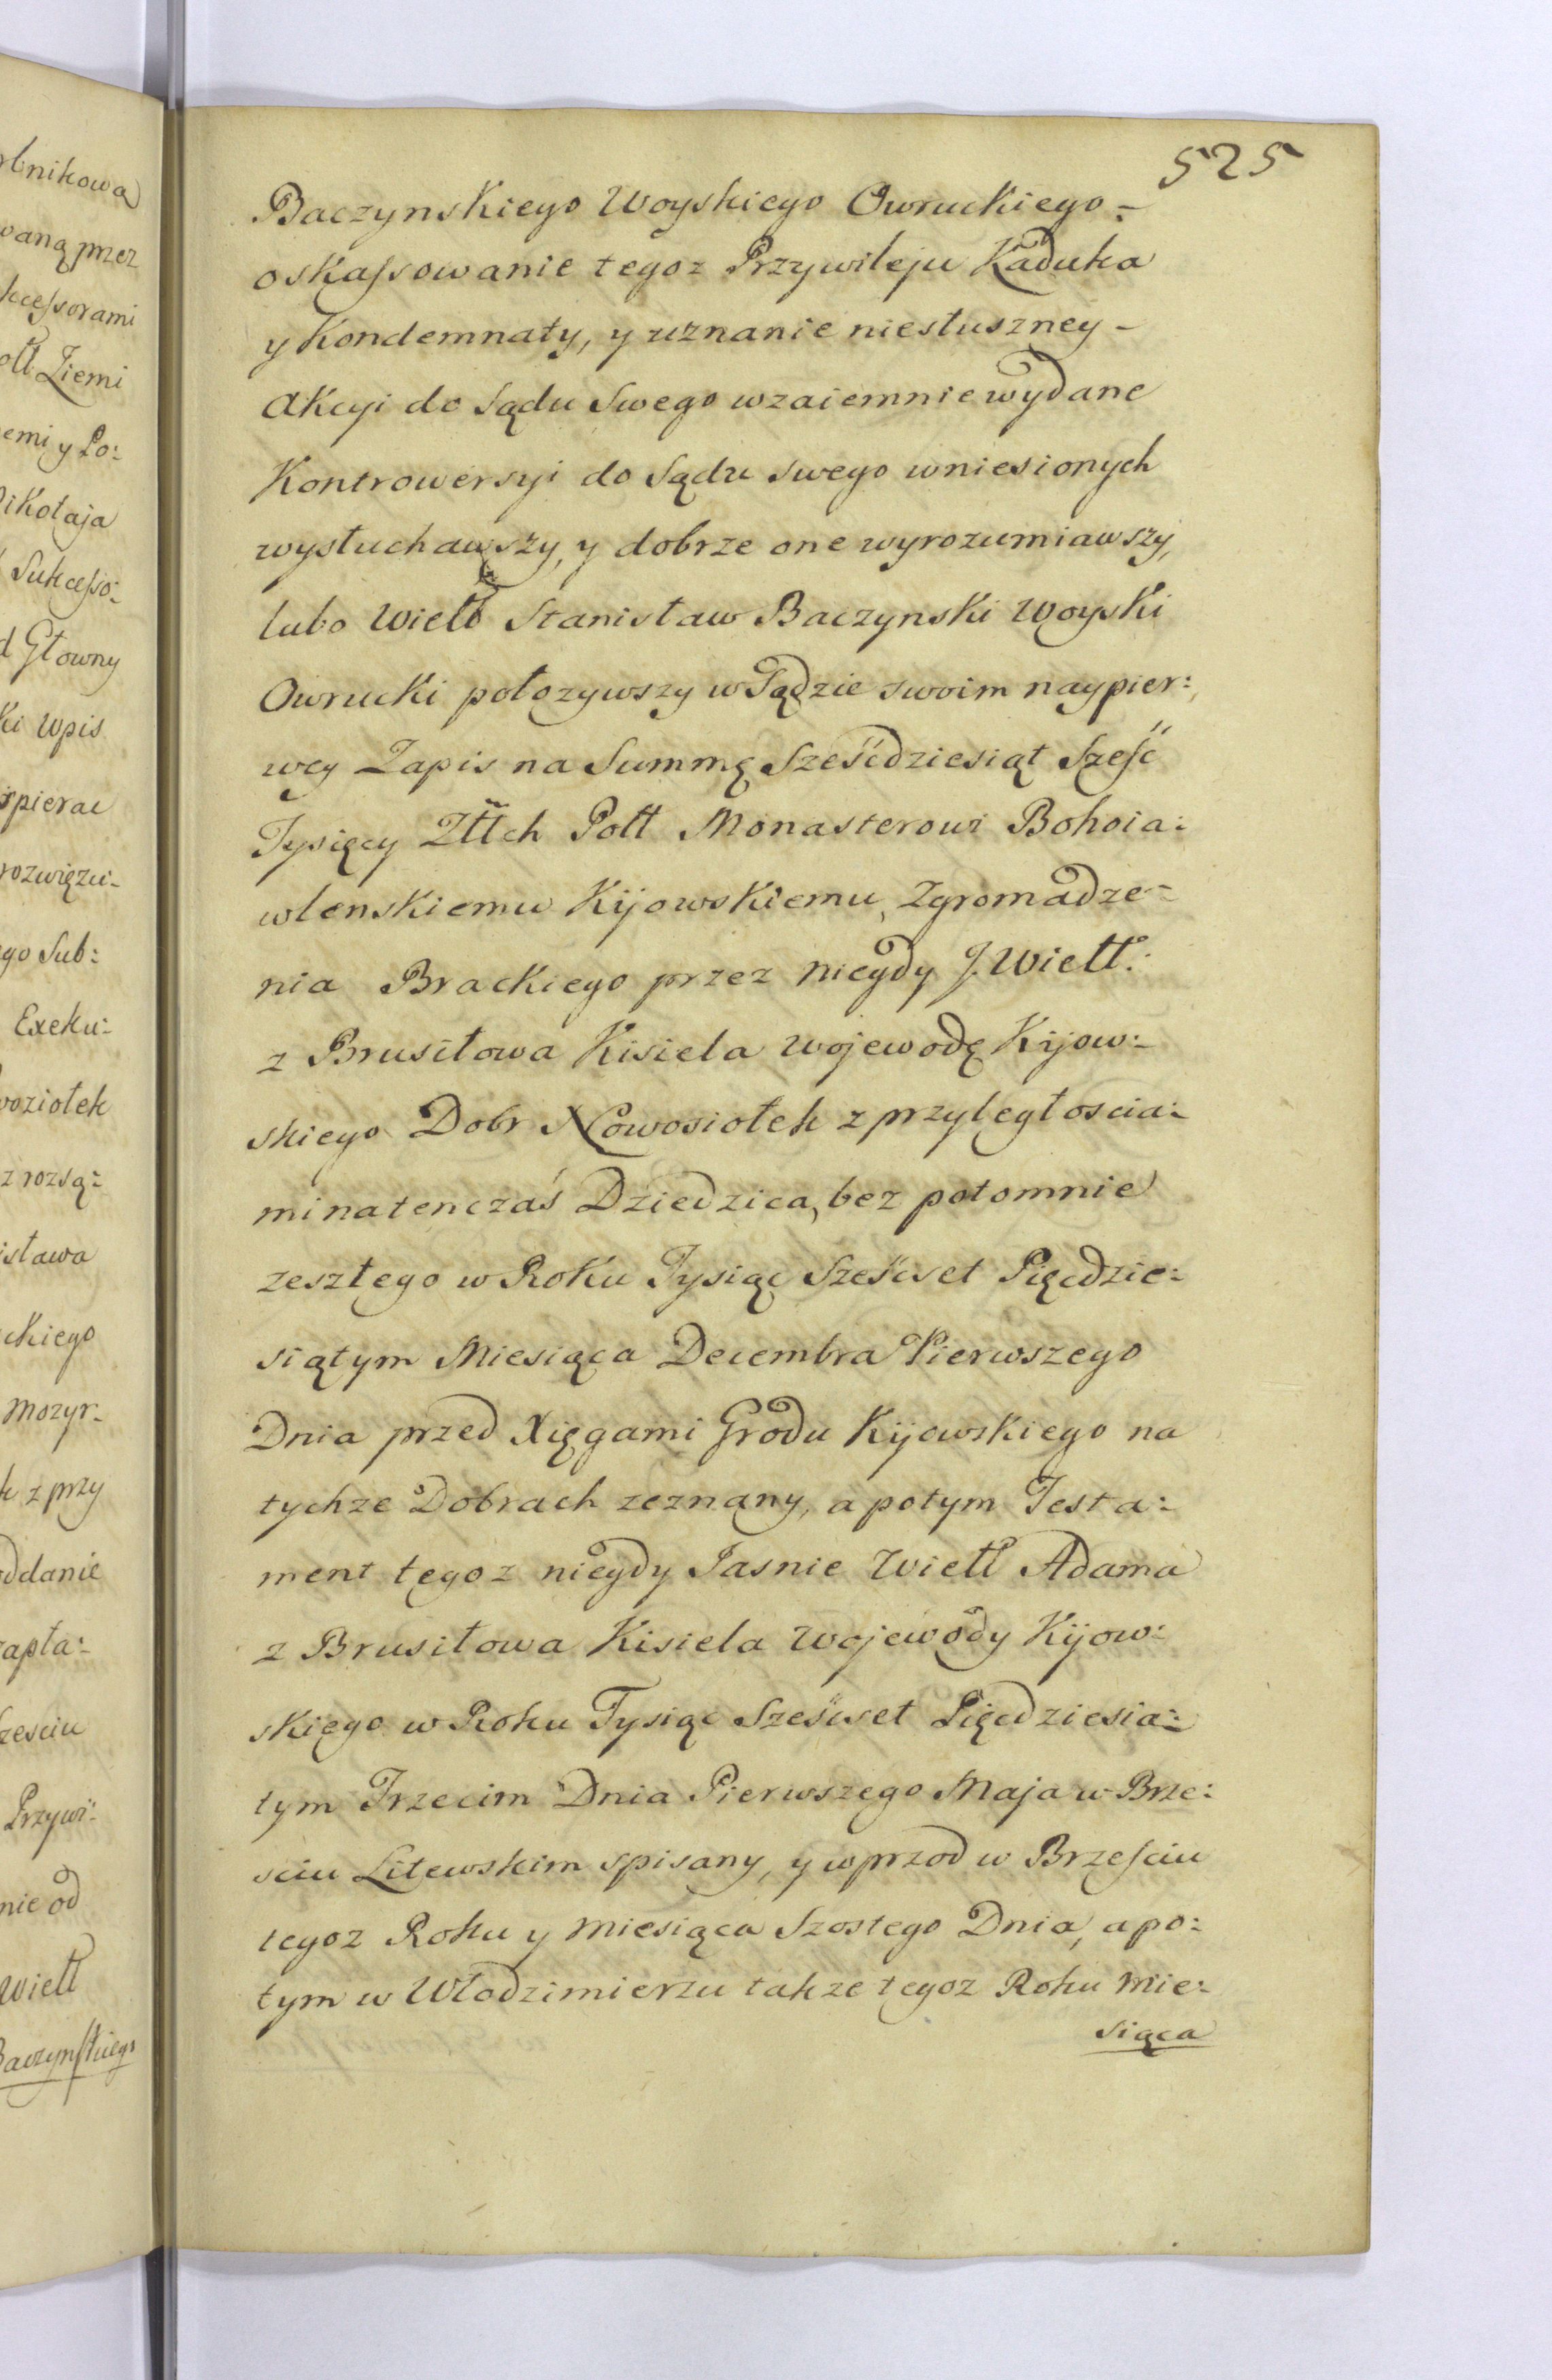 525
Baczynskiego Woyskiego Owruckiego -
oskassowanie tegoz Przywileju Kaduka
y Kondemnaty, y uznanie niesłuszney -
Akcyi do Sądu Swego wzaiemnie wydane
Kontrowersyi do Sądu swego wniesionych
wysłuchawszy, y dobrze one wyrozumiawszy,
lubo Wiełł Stanisław Baczynski Woyski
Owrucki połozywszy w Sądzie swoim naypier:
wey Zapis na Summę Sześćdziesiąt Sześć
Tysięcy Złłch Poll Monasterowi Bohoia:
wlenskiemu Kijowskiemu, Zgromadze-
nia Brackiego przez niegdy J. Wiełł:
z Brusiłowa Kisiela Wojewodę Kijow:
skiego Dobr Nowosiołek z przyległoscia:
mi natenczaś Dziedzica, bez potomnie
zeszłego w Roku Tysiąc Sześćset Pięcdzie:
siątym Miesiąca Decembra Pierwszego
Dnia przed Xięgami Grodu Kijowskiego na
tychze Dobrach zeznany, a potym Testa:
ment tegoz niegdy Jasnie Wiełł Adama
z Brusiłowa Kisiela Wojewody Kijow:
skiego w Roku Tysiąc Sześćset Pięcdziesia:
tym Trzecim Dnia Pierwszego Maja w Brze:
sciu Litewskim spisany, y wprzod w Brzesciu
tegoz Roku y Miesiąca Szostego Dnia, a po:
tym w Włodzimierzu takze tegoz Roku Mie:
siąca